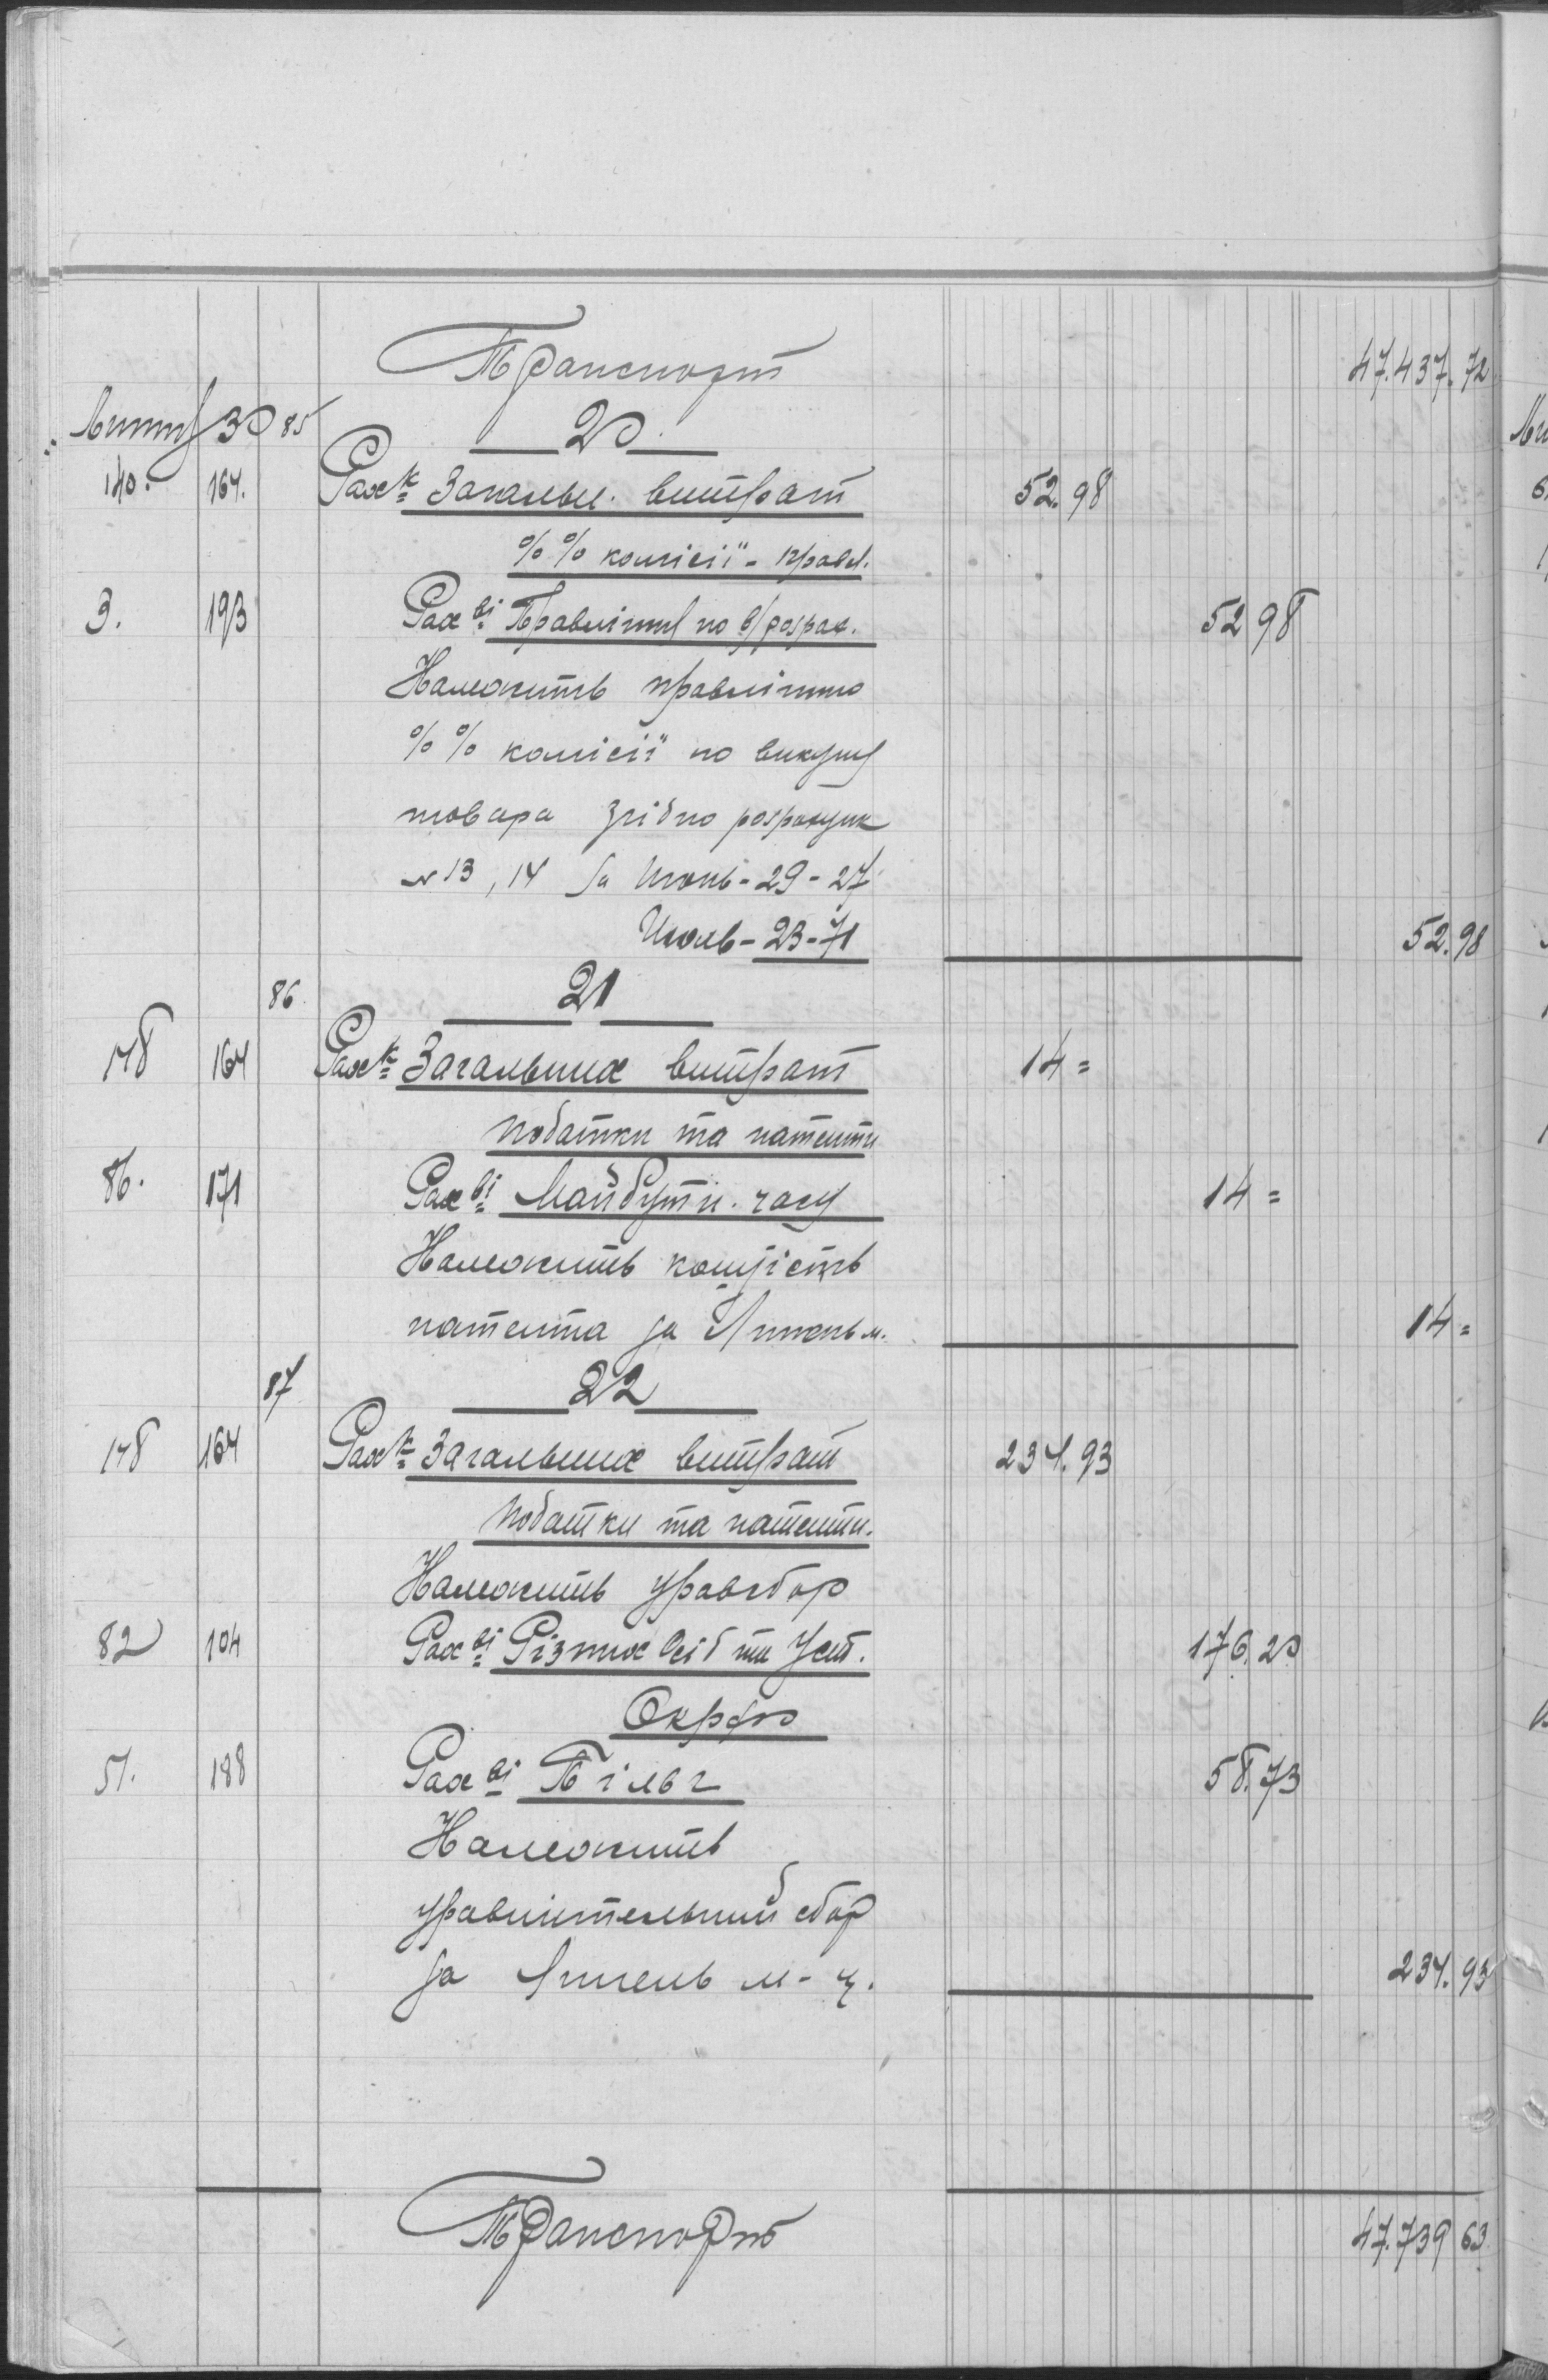 Транспорт 47.437.72
Липня 30 85 20
140. 164. Рах-к Загальн. витрат 52.98
%% комісії - правл.
3. 193 Рах ві Правління по в/розрах. 52 98
Належить правлінню
%% комісії по викупу
товара згідно розрахунк
№ 13, 14 за Июнь - 29 - 27
Июль - 23 - 71 52.98
86 21
148 164 Рах-к Загальних витрат 14 =
податки та патенти
86. 171 Рах ві Майбутн. часу 14 =
Належить
патента за м. 14 =
87 22
148 164 Рах-к Загальних витрат 234.93
податки та патенти.
Належить уравсбор
82 104 Рах ві Різних Осіб та Уст. 176.20
Окрфо
51. 188 Рах ві 58.73
Належить
уравнительний сбор
за Липень м-ц. 234.93
Транспорт 47.739 63